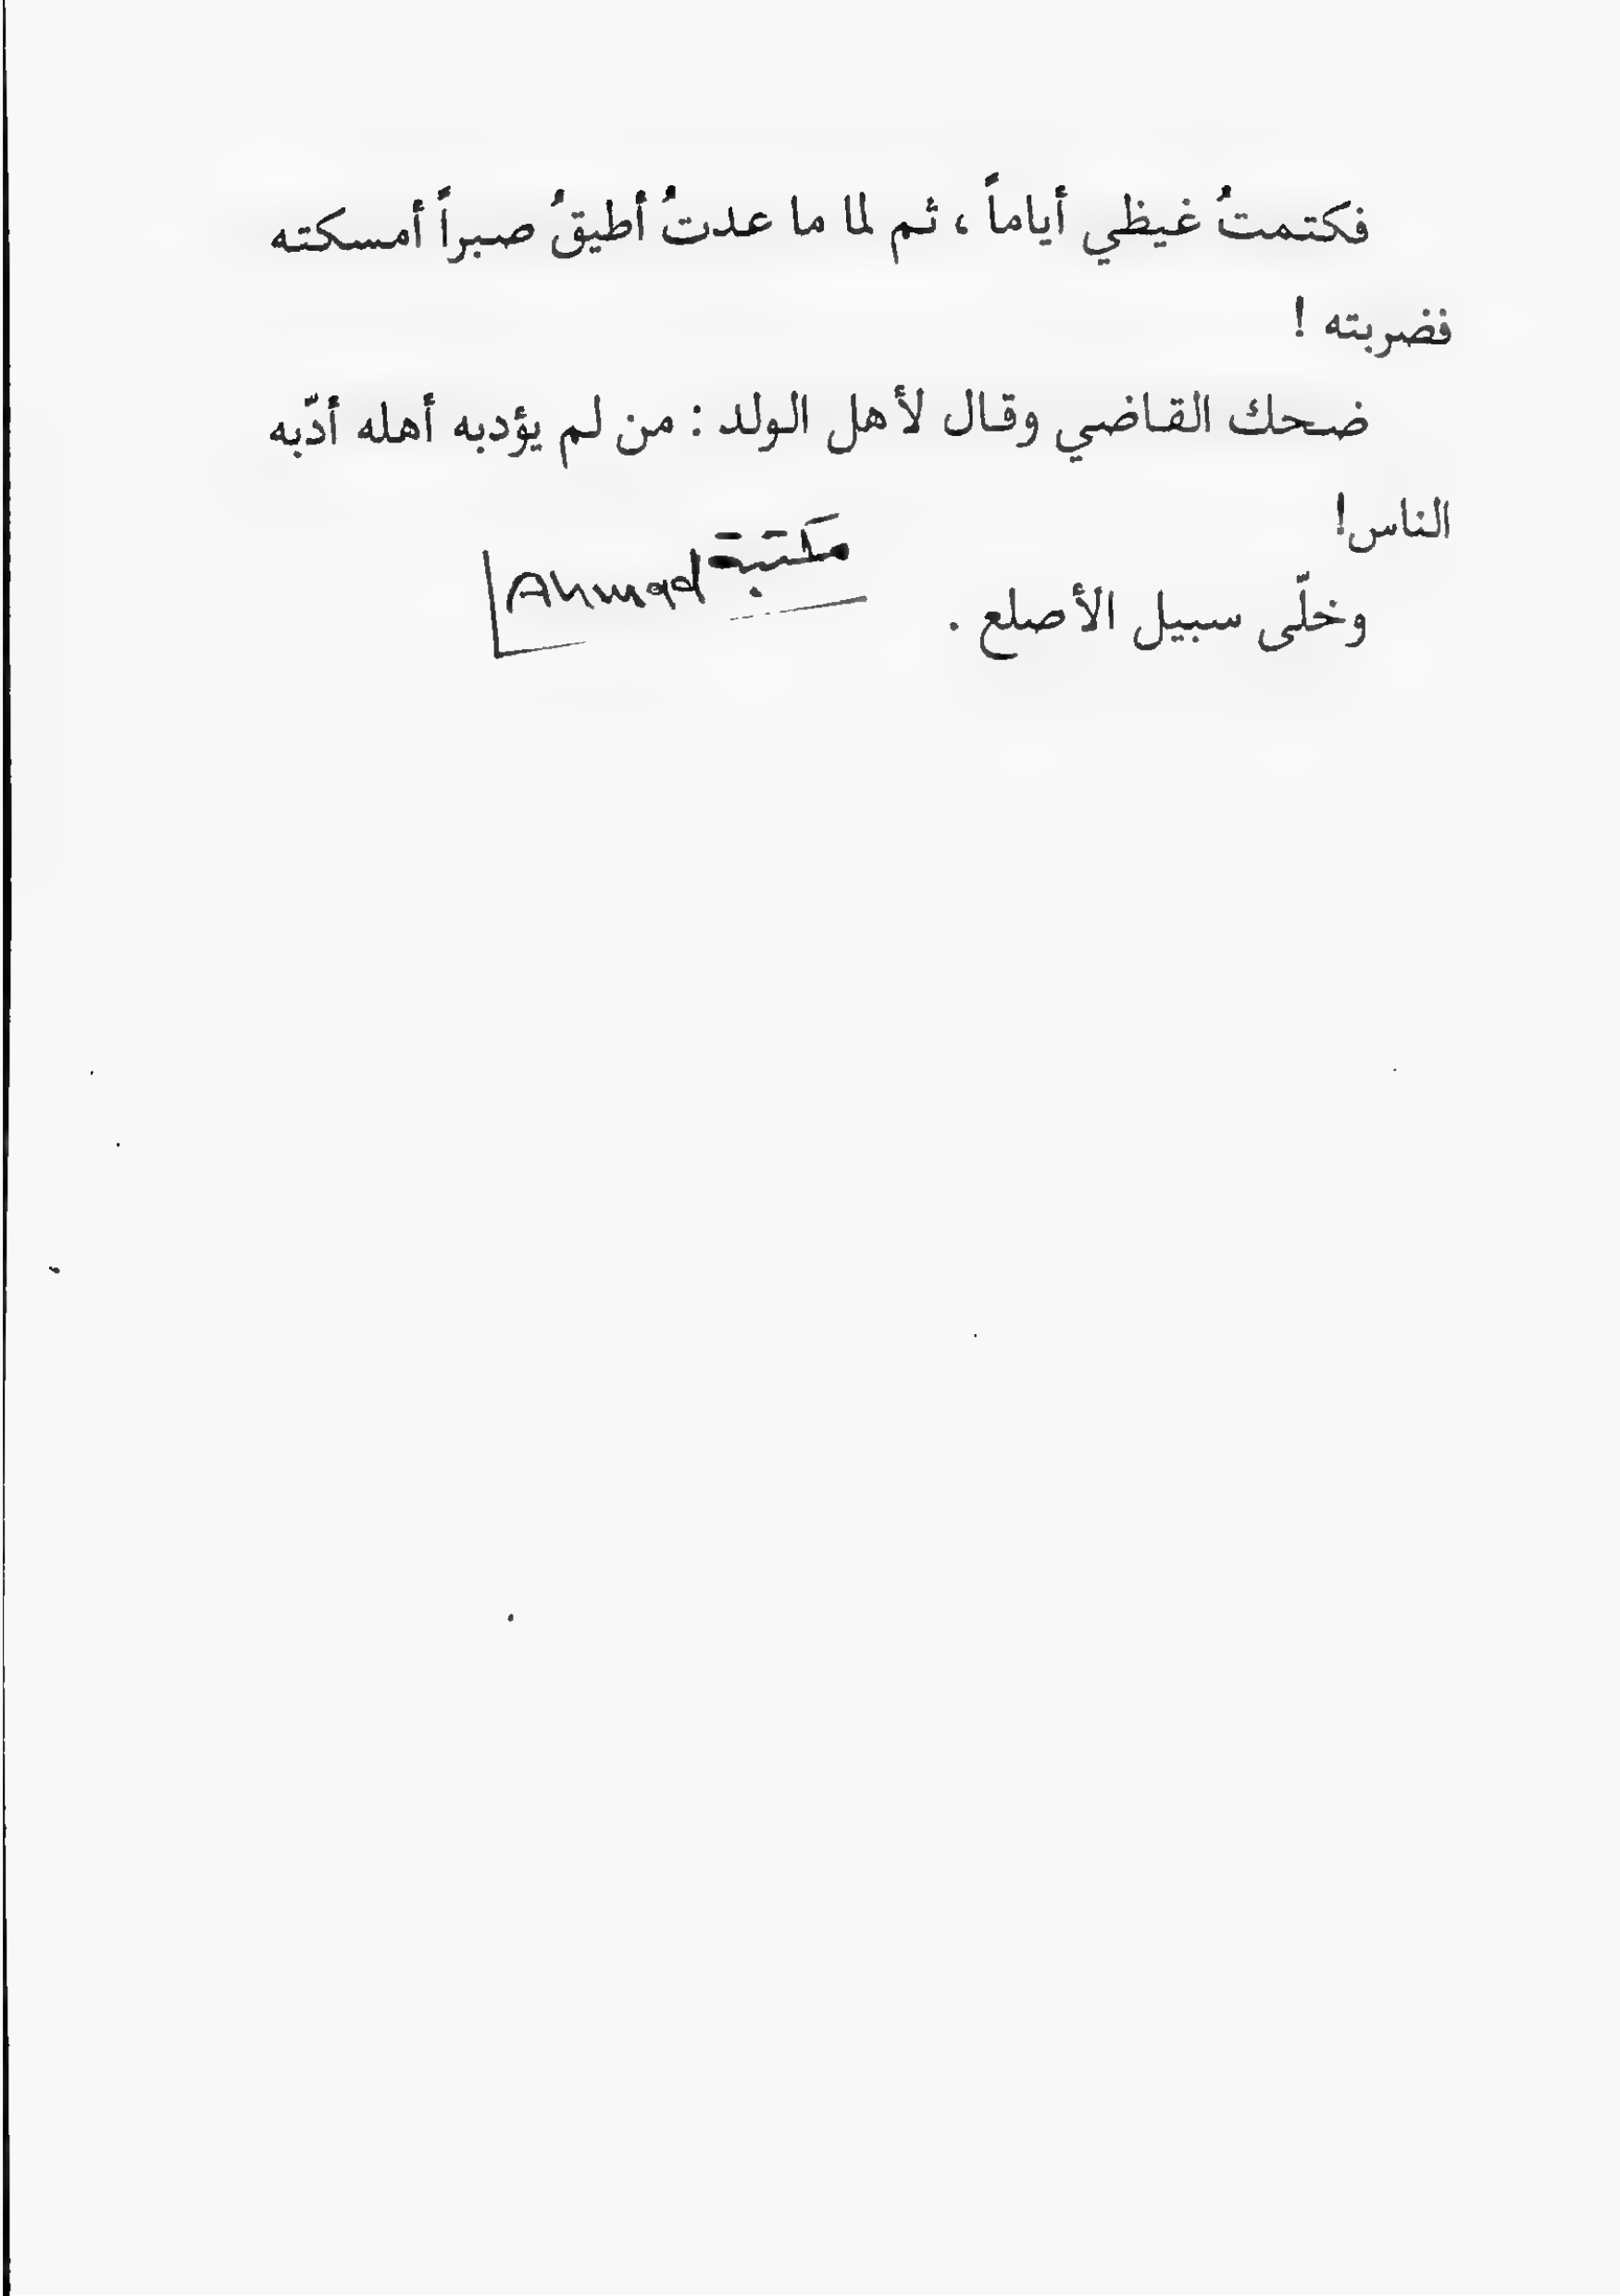 فكتمتُ غيظي أياماً ، ثم لما ما عدتُ أطيقُ صبراً أمسكته
فضربته !
ضحك القاضي وقال لأهل الولد : من لم يؤدبه أهله أدّبه
الناس!
مكتبة Ahmad
وخلّى سبيل الأصلع .